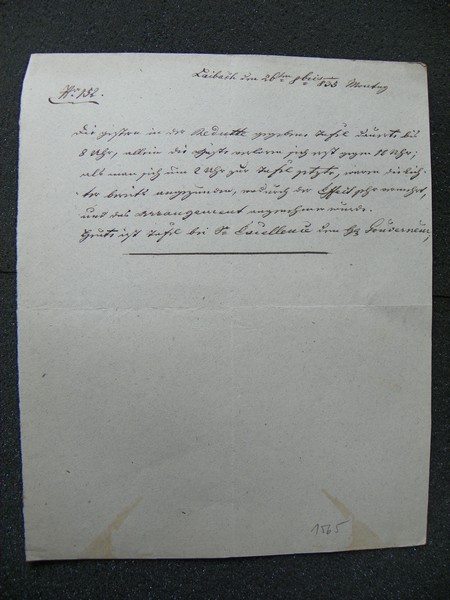 Laibach den 26ten 8bris 835 Montag
No 132.
Die gestern in der Redoute gegebene Tafel dauerte bis
8 Uhr, allein die Gäste verloren sich erst gegen 10 Uhr;
als man sich um 2 Uhr zur Tafel setzte, waren die Lich-
ter bereits angezunden, wodurch der Effeit sehr vermehrt,
und das Arrangement angenehmer wurde.
Heute ist Tafel bei Sr Excellence dem H Gouverneur,
1565